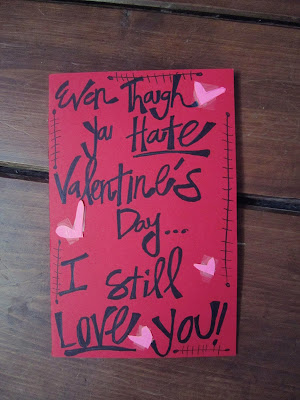 Even Though
ya Hate
Valentine's
Day...
I Still
Love you!